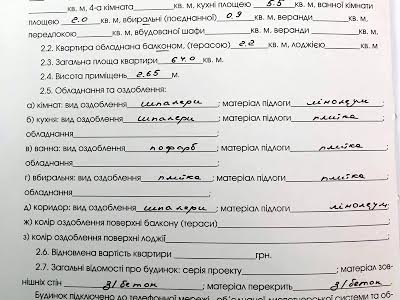 кв. м, 4-а кімната кв. м, кухні площею 5.5 кв. м, ванної кімнати
площею 2.0 кв. м, вбиральні (поєднаної) 0.9 кв. м, веранди кв. м,
передпокою кв. м, вбудованої шафи кв. м, веранди кв. м.
2.2. Квартира обладнана балконом, (терасою) 2.2 кв. м, лоджією кв. м
2.3. Загальна площа квартири 64.0 кв. м.
2.4. Висота приміщень 2.65 м.
2.5. Обладнання та оздоблення:
а) кімнат: вид оздоблення шпалери; матеріал підлоги лінолеум;
б) кухня: вид оздоблення шпалери; матеріал підлоги плитка;
обладнання;
в) ванна: вид оздоблення пофарб; матеріал підлоги плитка;
обладнання;
г) вбиральня: вид оздоблення плитка; матеріал підлоги плитка;
обладнання;
д) коридор: вид оздоблення шпалери; матеріал підлоги лінолеум;
ж) колір оздоблення поверхні балкону (тераси);
з) колір оздоблення поверхні лоджії.
2.6. Відновлена вартість квартири грн.
2.7. Загальні відомості про будинок: серія проекту; матеріал зов-
нішніх стін з/бетон; матеріал перекрить з/бетон.
Будинок підключено до телефонної мережі, об'єднаної диспетчерської системи та об-